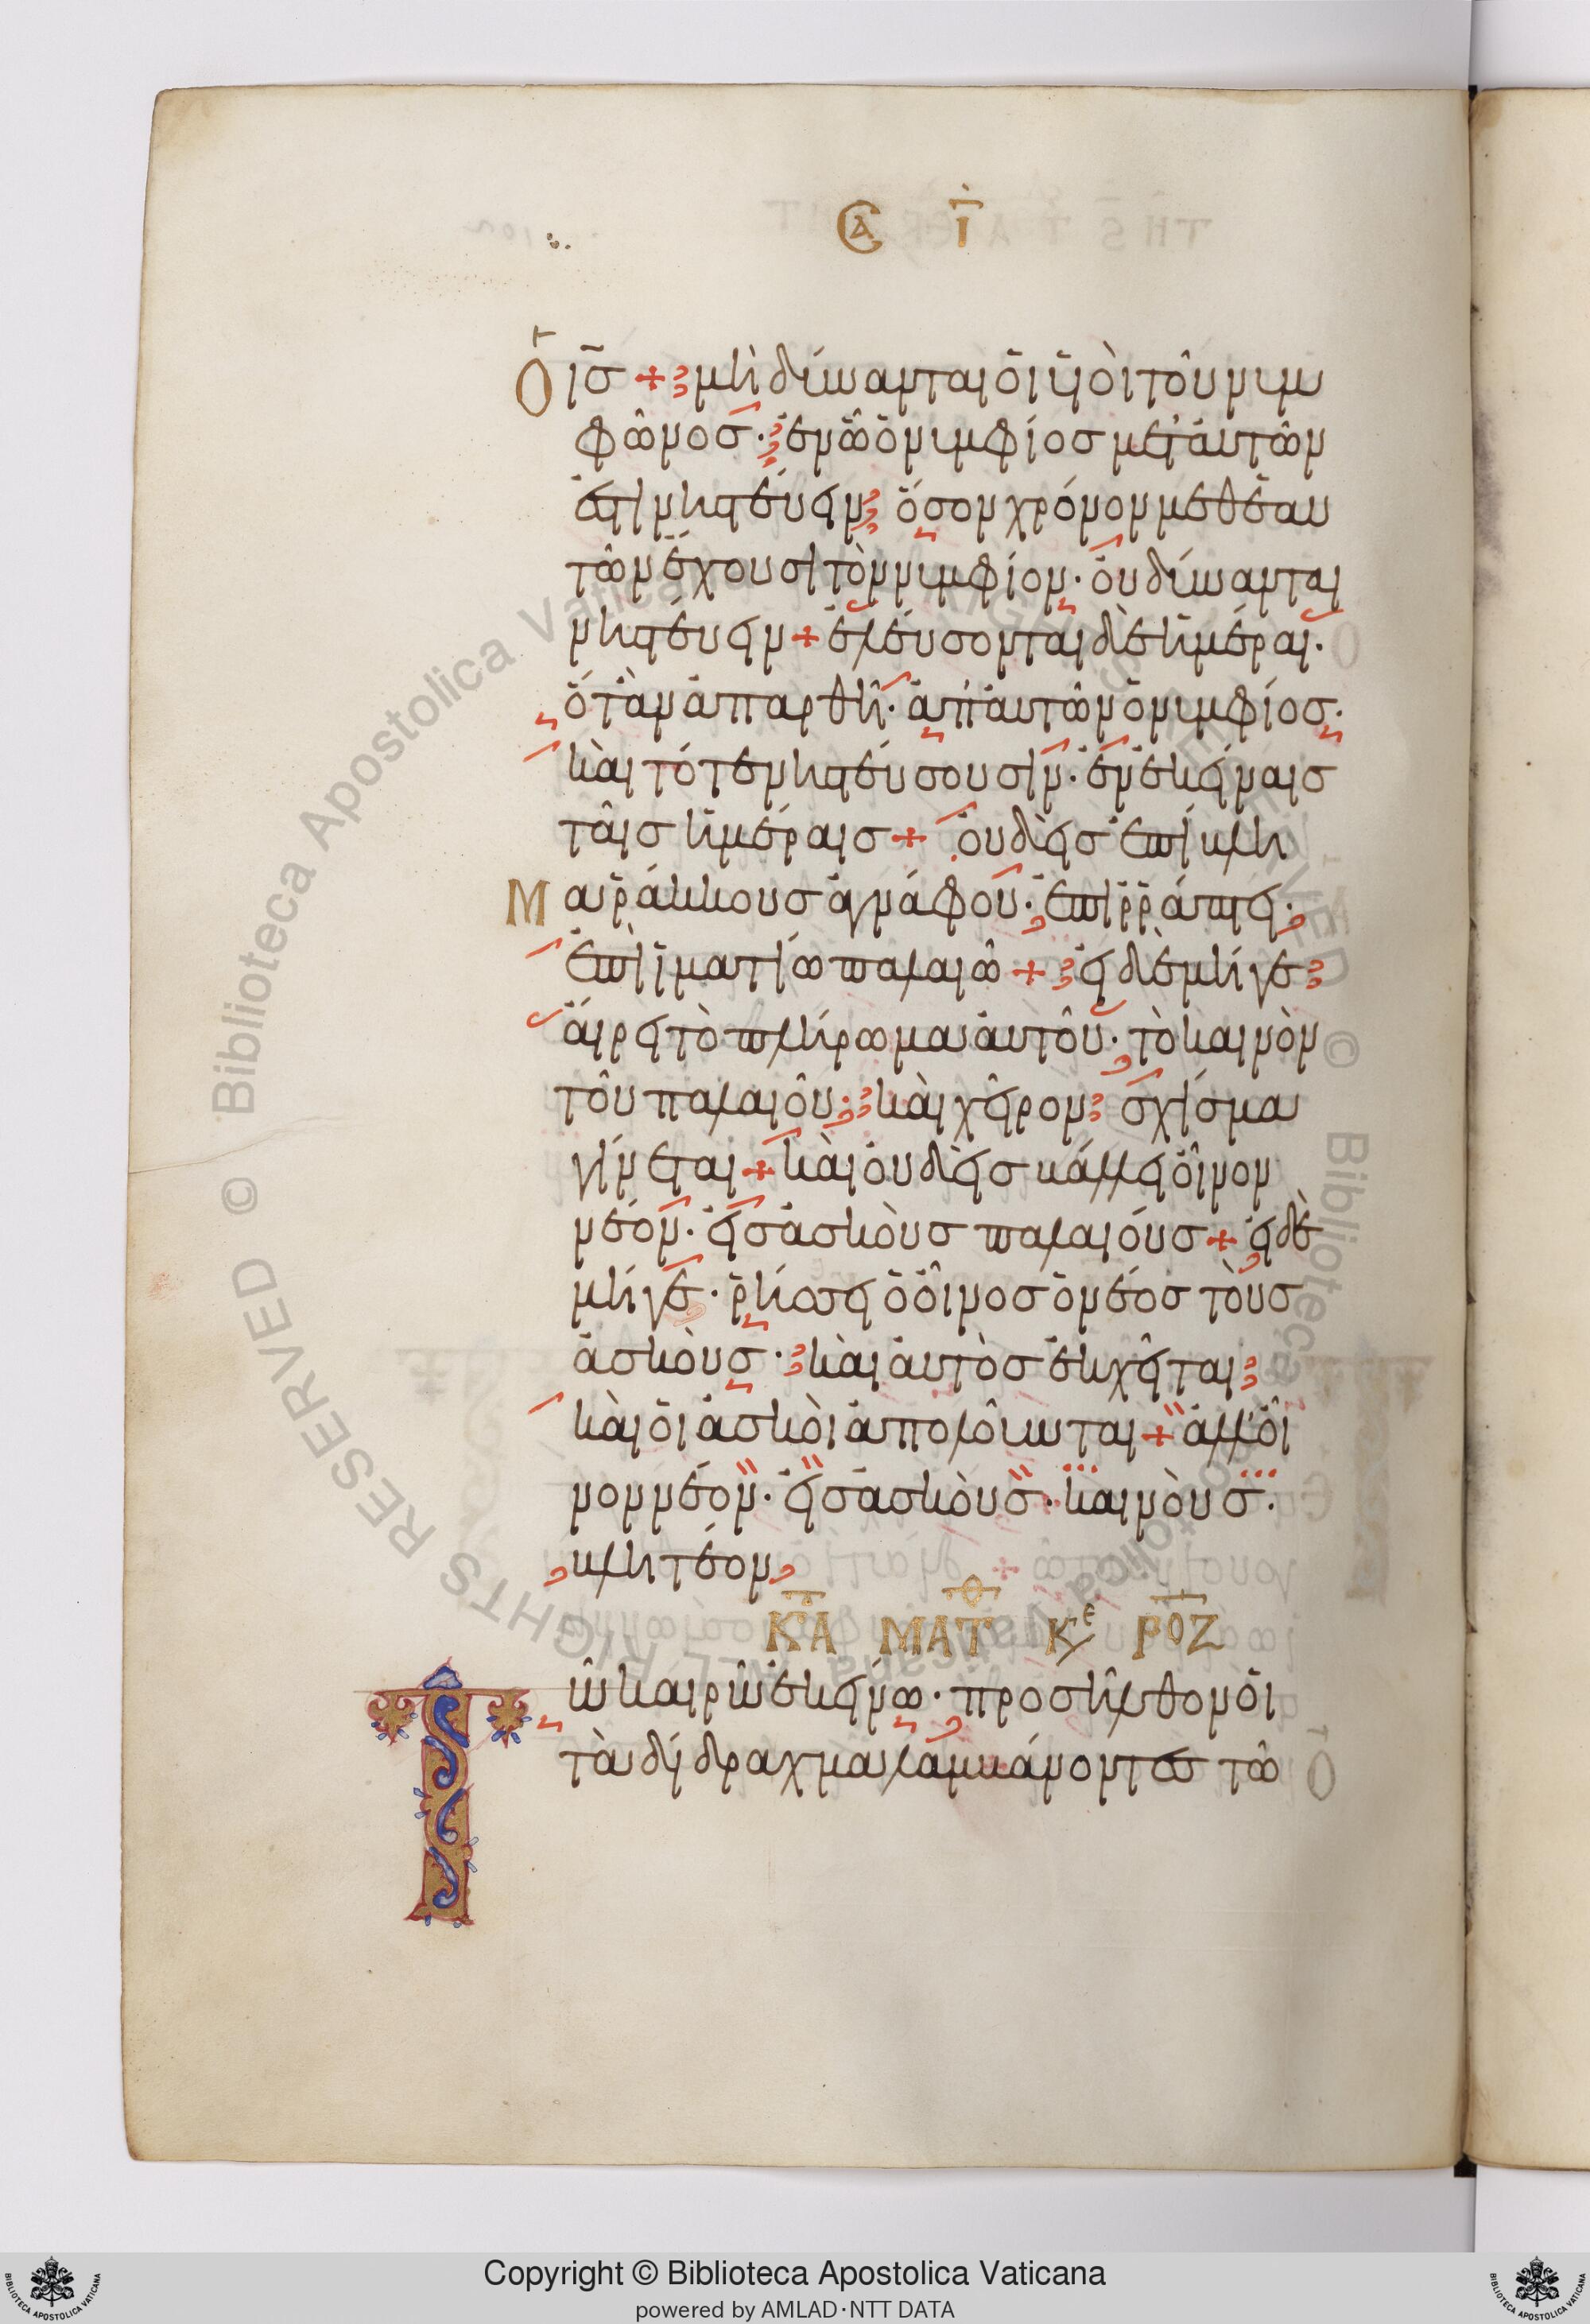 ΣΑ Ϊ
Ὁ ισ + μὴ δύνανται ὁι ὑιὸι τοῦ νυμ
φῶνοσ· ἐν ᾧ ὁ νυμφίοσ μετ' ἀυτῶν
ἐστὶ νηστέυειν ὅσον χρόνον μεθ' ἑαυ
τῶν ἔχουσι τὸν νυμφίον· ὀυ δύνανται
νηστέυειν + ἐλέυσονται δὲ ἡμέραι·
ὅτ' ἂν ἀπαρθῆ· ἀπ' ἀυτῶν ὁ νυμφίοσ·
κὰι τότε νηστέυσουσιν· ἐν ἐκείναισ
τᾶισ ἡμέραισ + ὀυδὲισ ἐπίβλη
Μα ῥάκκουσ ἀγνάφου· ἐπιρράπτει·
ἐπὶ ἱματίω παλαιῶ + ἐι δὲ μήγε
ἄιρει τὸ πλήρωμα ἀυτοῦ· τὸ καινὸν
τοῦ παλαιοῦ· κὰι χεῖρον σχίσμα
γίνεται + κὰι ὀυδὲισ βάλλει ὄινον
νέον· ἐισ ἀσκὸυσ παλαιόυσ + ἐι δὲ
μήγε· ῥήσσει ὁ ὄινοσ ὁ νέοσ τὸυσ
ἀσκὸυσ· κὰι ἀυτὸσ ἐκχεῖται
κὰι ὁι ἀσκὸι ἀπολοῦνται + ἀλλ' ὄι
νον νέον· ἐισ ἀσκὸυσ· καινὸυσ·
βλητέον
ΚΑ ΜΑΤΘ ΚΕ ΡΟΖ
Τῶ καιρῶ ἐκείνω· προσῆλθον ὁι
τὰ δίδραχμα λαμβάνοντεσ τῶ
Copyright © Biblioteca Apostolica Vaticana
powered by AMLAD·NTT DATA